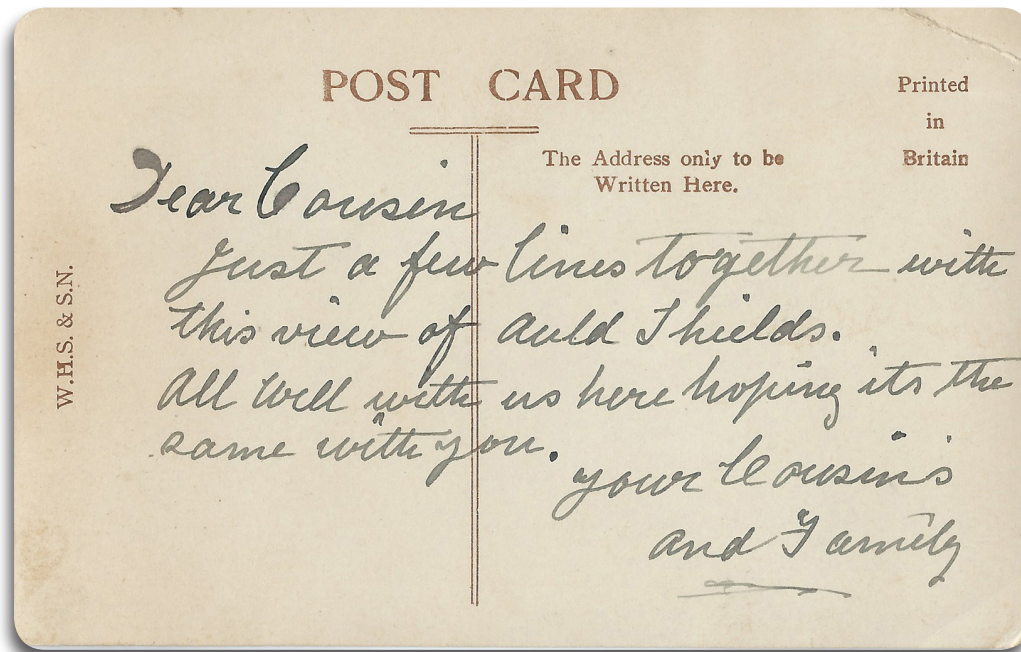 POST CARD
Printed
in
Britain
The Address only to be
Written Here.
W.H.S. & S.N.
Dear Cousin
Just a few lines together with
this view of Auld Shields.
All Well with us here hoping its the
same with you.
your Cousins
and Family